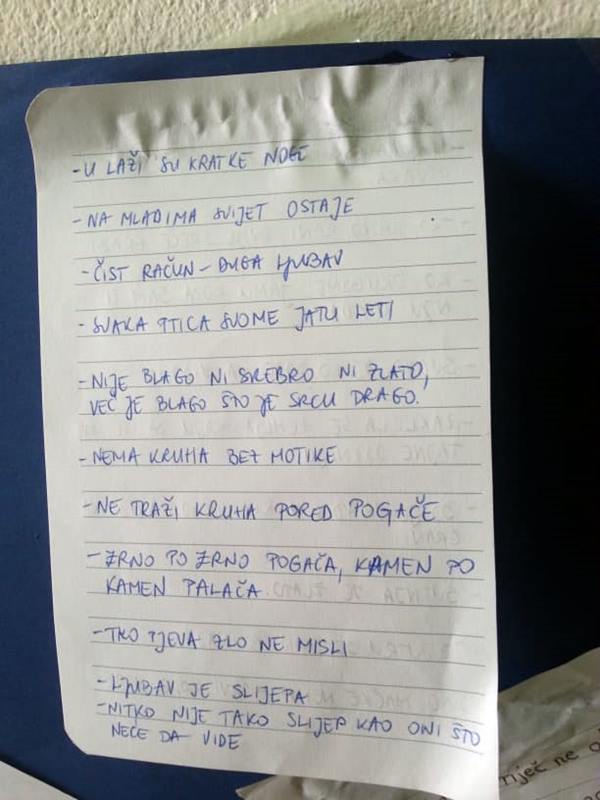 - U LAŽI SU KRATKE NOGE
- NA MLADIMA SVIJET OSTAJE
- ČIST RAČUN - DUGA LJUBAV
- SVAKA PTICA SVOME JATU LETI
- NIJE BLAGO NI SREBRO NI ZLATO,
VEĆ JE BLAGO ŠTO JE SRCU DRAGO.
- NEMA KRUHA BEZ MOTIKE
- NE TRAŽI KRUHA PORED POGAČE
- ZRNO PO ZRNO POGAČA, KAMEN PO
KAMEN PALAČA.
- TKO PJEVA ZLO NE MISLI
- LJUBAV JE SLIJEPA
- NITKO NIJE TAKO SLIJEP KAO ONI ŠTO
NEĆE DA VIDE
riječ ne